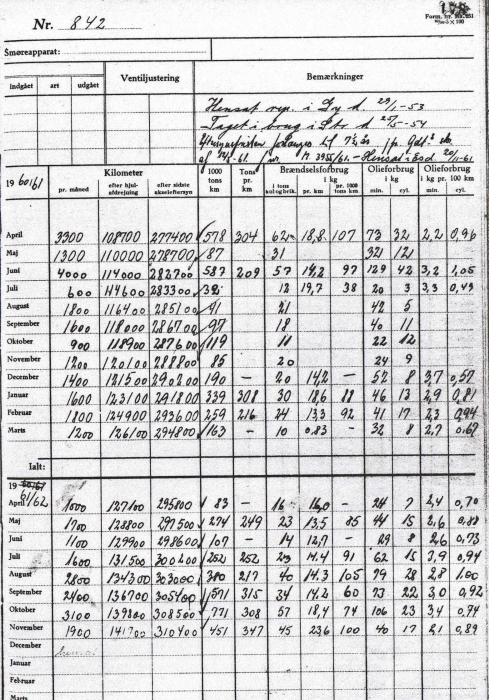 Nr. 842
Form. nr. Ma. 251
Smøreapparat:
Indgået art udgået Ventiljustering Bemærkninger
Hensat rep. i Gy d. 29/1-53
Taget i brug i Str d. 25/5-54
af 24/2-61. nr. M. 3955/61. - Hensat i Es d. 20/11-61
1960/61 Kilometer 1000 tons km Tons pr. km Brændselsforbrug i kg Olieforbrug i kg Olieforbrug i kg pr. 100 km
pr. måned efter hjulafdrejning efter sidste akseleftersyn i tons kul og brik. pr. km pr. 1000 tons km min. cyl. min. cyl.
April 3300 108700 277400 578 304 62 18,8 107 73 32 2,2 0,96
Maj 1300 110000 278700 87 31 32 12
Juni 4000 114000 282700 587 209 57 14,2 97 129 42 3,2 1,05
Juli 600 114600 283300 32 12 19,7 38 20 3 3,3 0,49
August 1800 116400 285100 41 21 42 5
September 1600 118000 286700 97 18 40 11
Oktober 900 118900 287600 119 11 22 12
November 1200 120100 288800 85 20 24 9
December 1400 121500 290200 190 - 20 14,2 - 52 8 3,7 0,57
Januar 1600 123100 291800 339 308 30 18,6 88 46 13 2,9 0,81
Februar 1800 124900 293600 259 216 24 13,3 92 41 17 2,3 0,94
Marts 1200 126100 294800 163 - 10 0,83 - 32 8 2,7 0,67
Ialt:
19 60/61
61/62
April 1000 127100 295800 83 - 16 16,0 - 24 7 2,4 0,70
Maj 1700 128800 297500 274 249 23 13,5 85 44 15 2,6 0,88
Juni 1100 129900 298600 107 - 14 12,7 - 29 8 2,6 0,73
Juli 1600 131500 300200 252 252 23 14.4 91 62 15 3,9 0,94
August 2800 134300 303000 380 217 40 14.3 105 79 28 2,8 1.00
September 2400 136700 305400 571 315 34 14.2 60 73 22 3,0 0,92
Oktober 3100 139800 308500 771 308 57 18,4 74 106 23 3,4 0,74
November 1900 141700 310400 451 347 45 23,6 100 40 17 2,1 0,89
December
Januar
Februar
Marts